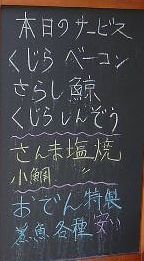 本日のサービス
くじら ベーコン
さらし鯨
くじら しんぞう
さんま塩焼
小鯛
おでん 特製
煮魚各種 安い